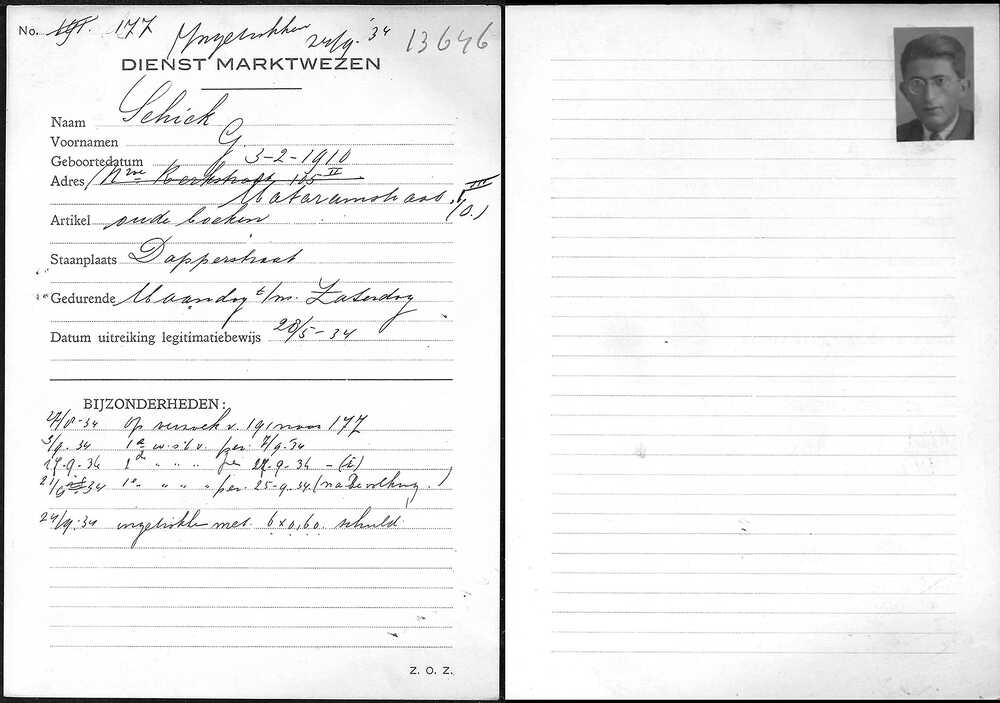 No. 191. 177 Ingetrokken 24/9-'34 13646
DIENST MARKTWEZEN
Naam Schick
Voornamen G.
Geboortedatum 3-2-1910
Adres Nwe Kerkstraat 105 II
Mataramstraat 1 III (O.)
Artikel oude boeken
Staanplaats Dapperstraat
Gedurende Maandag t/m. Zaterdag
Datum uitreiking legitimatiebewijs 28/5-34
BIJZONDERHEDEN:
27/8-34 op verzoek v. 191 naar 177
3/9.34 1e w.s.b.v. per 7/9-34
17-9-34 2de " " " per 17-9-34 - (i)
21/9-34 1e " " " per 25-9-34 (
24/9-34 ingetrokken met 6 x 0,60 schuld
Z. O. Z.